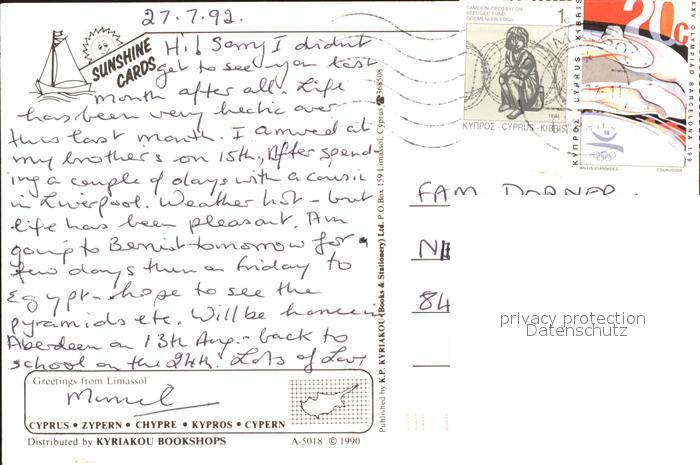 27.7.92.
SUNSHINE
CARDS
Hi! Sorry I didn't
get to see you last
month after all. Life
has been very hectic over
this last month. I arrived at
my brother's on 15th, After spend-
ing a couple of days with a cousin
in Liverpool. Weather hot - but
life has been pleasant. Am
going to tomorrow for a
few days then on Friday to
Egypt - hope to see the
pyramids etc. Will be home in
Aberdeen on 13th Aug. - back to
school on the 24th. Lots of Love
Greetings from Limassol
CYPRUS • ZYPERN • CHYPRE • KYPROS • CYPERN
Distributed by KYRIAKOU BOOKSHOPS A-5018 © 1990
Published by K.P. KYRIAKOU (Books & Stationery) Ltd. P.O.Box 159 Limassol, Cyprus ☎ 368508
ΤΑΜΕΙΟΝ ΠΡΟΣΦΥΓΩΝ
REFUGEE FUND
GÖÇMENLER FONU
1c
ΚΥΠΡΟΣ - CYPRUS - KIBRIS
20c
ΚΥΠΡΟΣ CYPRUS KIBRIS
XXV OLYMPIAD BARCELONA 19
ANTIS IOANNIDES
COURVOISIER
FAM DORNER.
84
privacy protection
Datenschutz